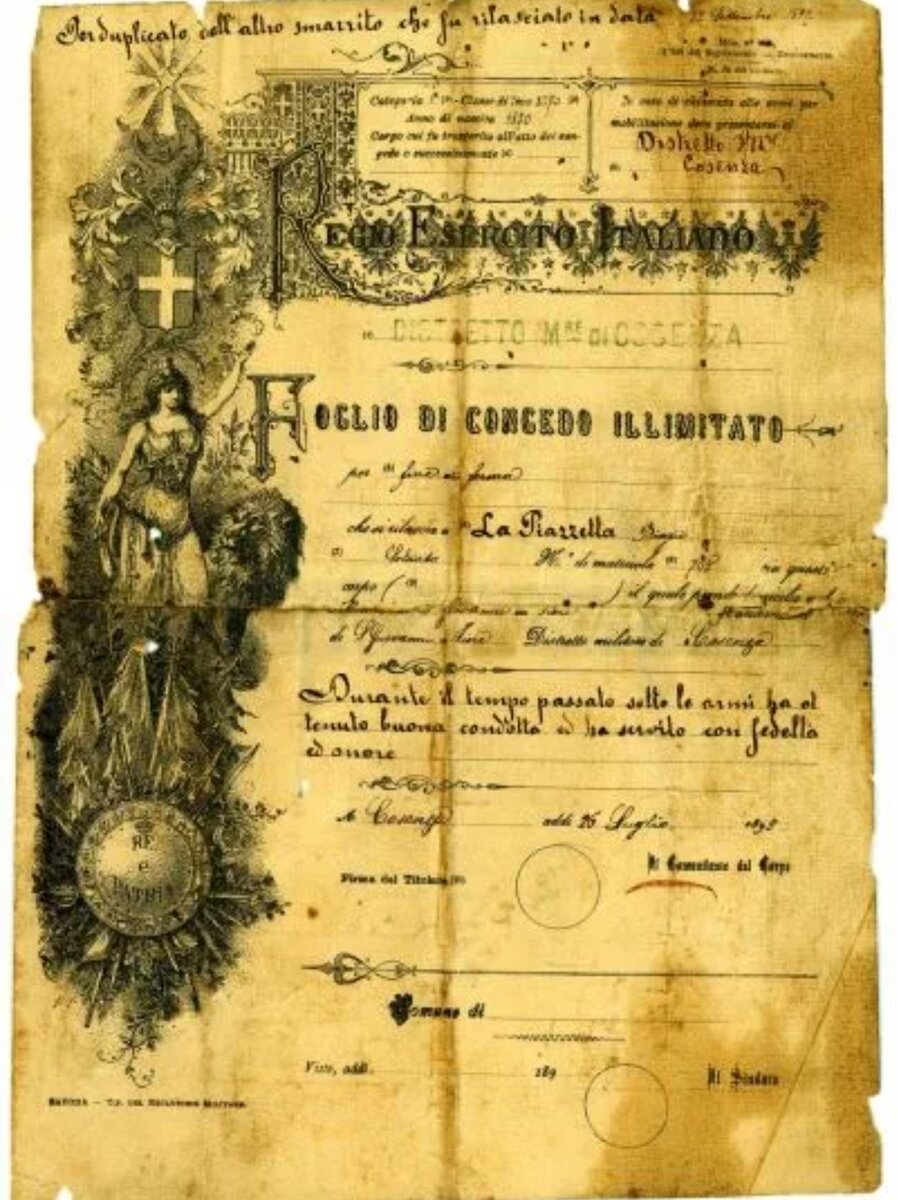 Per duplicato dell'altro smarrito che fu rilasciato in data
Categoria 1ª - Classe di leva 1870
Anno di nascita 1870
Corpo cui fu trasferito all'atto del con-
gedo o successivamente
In caso di chiamata alle armi per
mobilitazione deve presentarsi al
Distretto Mre
Cosenza
REGIO ESERCITO ITALIANO
DISTRETTO MRE di COSENZA
FOGLIO DI CONGEDO ILLIMITATO
per fine di ferma
che si rilascia a La Piazzetta Biagio
Soldato N.° di matricola in questo
corpo ( ) il quale
di S. Giovanni in Fiore Distretto militare di Cosenza
Durante il tempo passato sotto le armi ha ot
tenuto buona condotta ed ha servito con fedeltà
ed onore
A Cosenza addì 26 Luglio 189
Il Comandante del Corpo
Firma del Titolare
RE
e
PATRIA
Comune di
Visto, addì 189
Il Sindaco
SAVONA — TIP. DEL RECLUSORIO MILITARE.